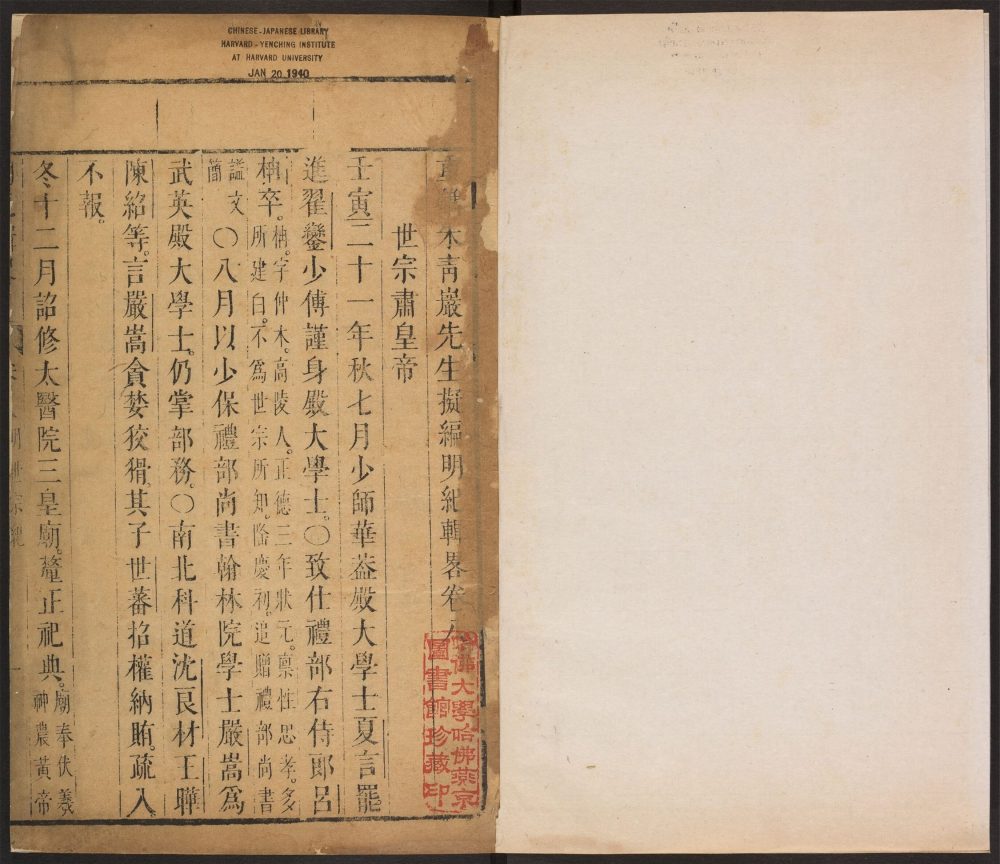 CHINESE-JAPANESE LIBRARY
HARVARD-YENCHING INSTITUTE
AT HARVARD UNIVERSITY
JAN 20 1940
朱青巖先生擬編明紀輯畧卷
世宗肅皇帝
壬寅二十一年秋七月少師華葢殿大學士夏言罷
進翟鑾少傅謹身殿大學士。○致仕禮部右侍郎呂
柟卒。柟。字仲木。高陵人。正德三年狀元。禀性思孝。多
所建白。不爲世宗所知。隆慶初。追贈禮部尚書
謚文
簡
○八月以少保禮部尚書翰林院學士嚴嵩爲
武英殿大學士。仍掌部務。○南北科道沈良材王曄
陳紹等。言嚴嵩貪婪狡猾。其子世蕃招權納賄。疏入
不報。
冬十二月詔修太醫院三皇廟。釐正祀典。廟奉伏羲
神農黃帝
明世宗紀
一
哈佛大學哈佛燕京
圖書館珍藏印